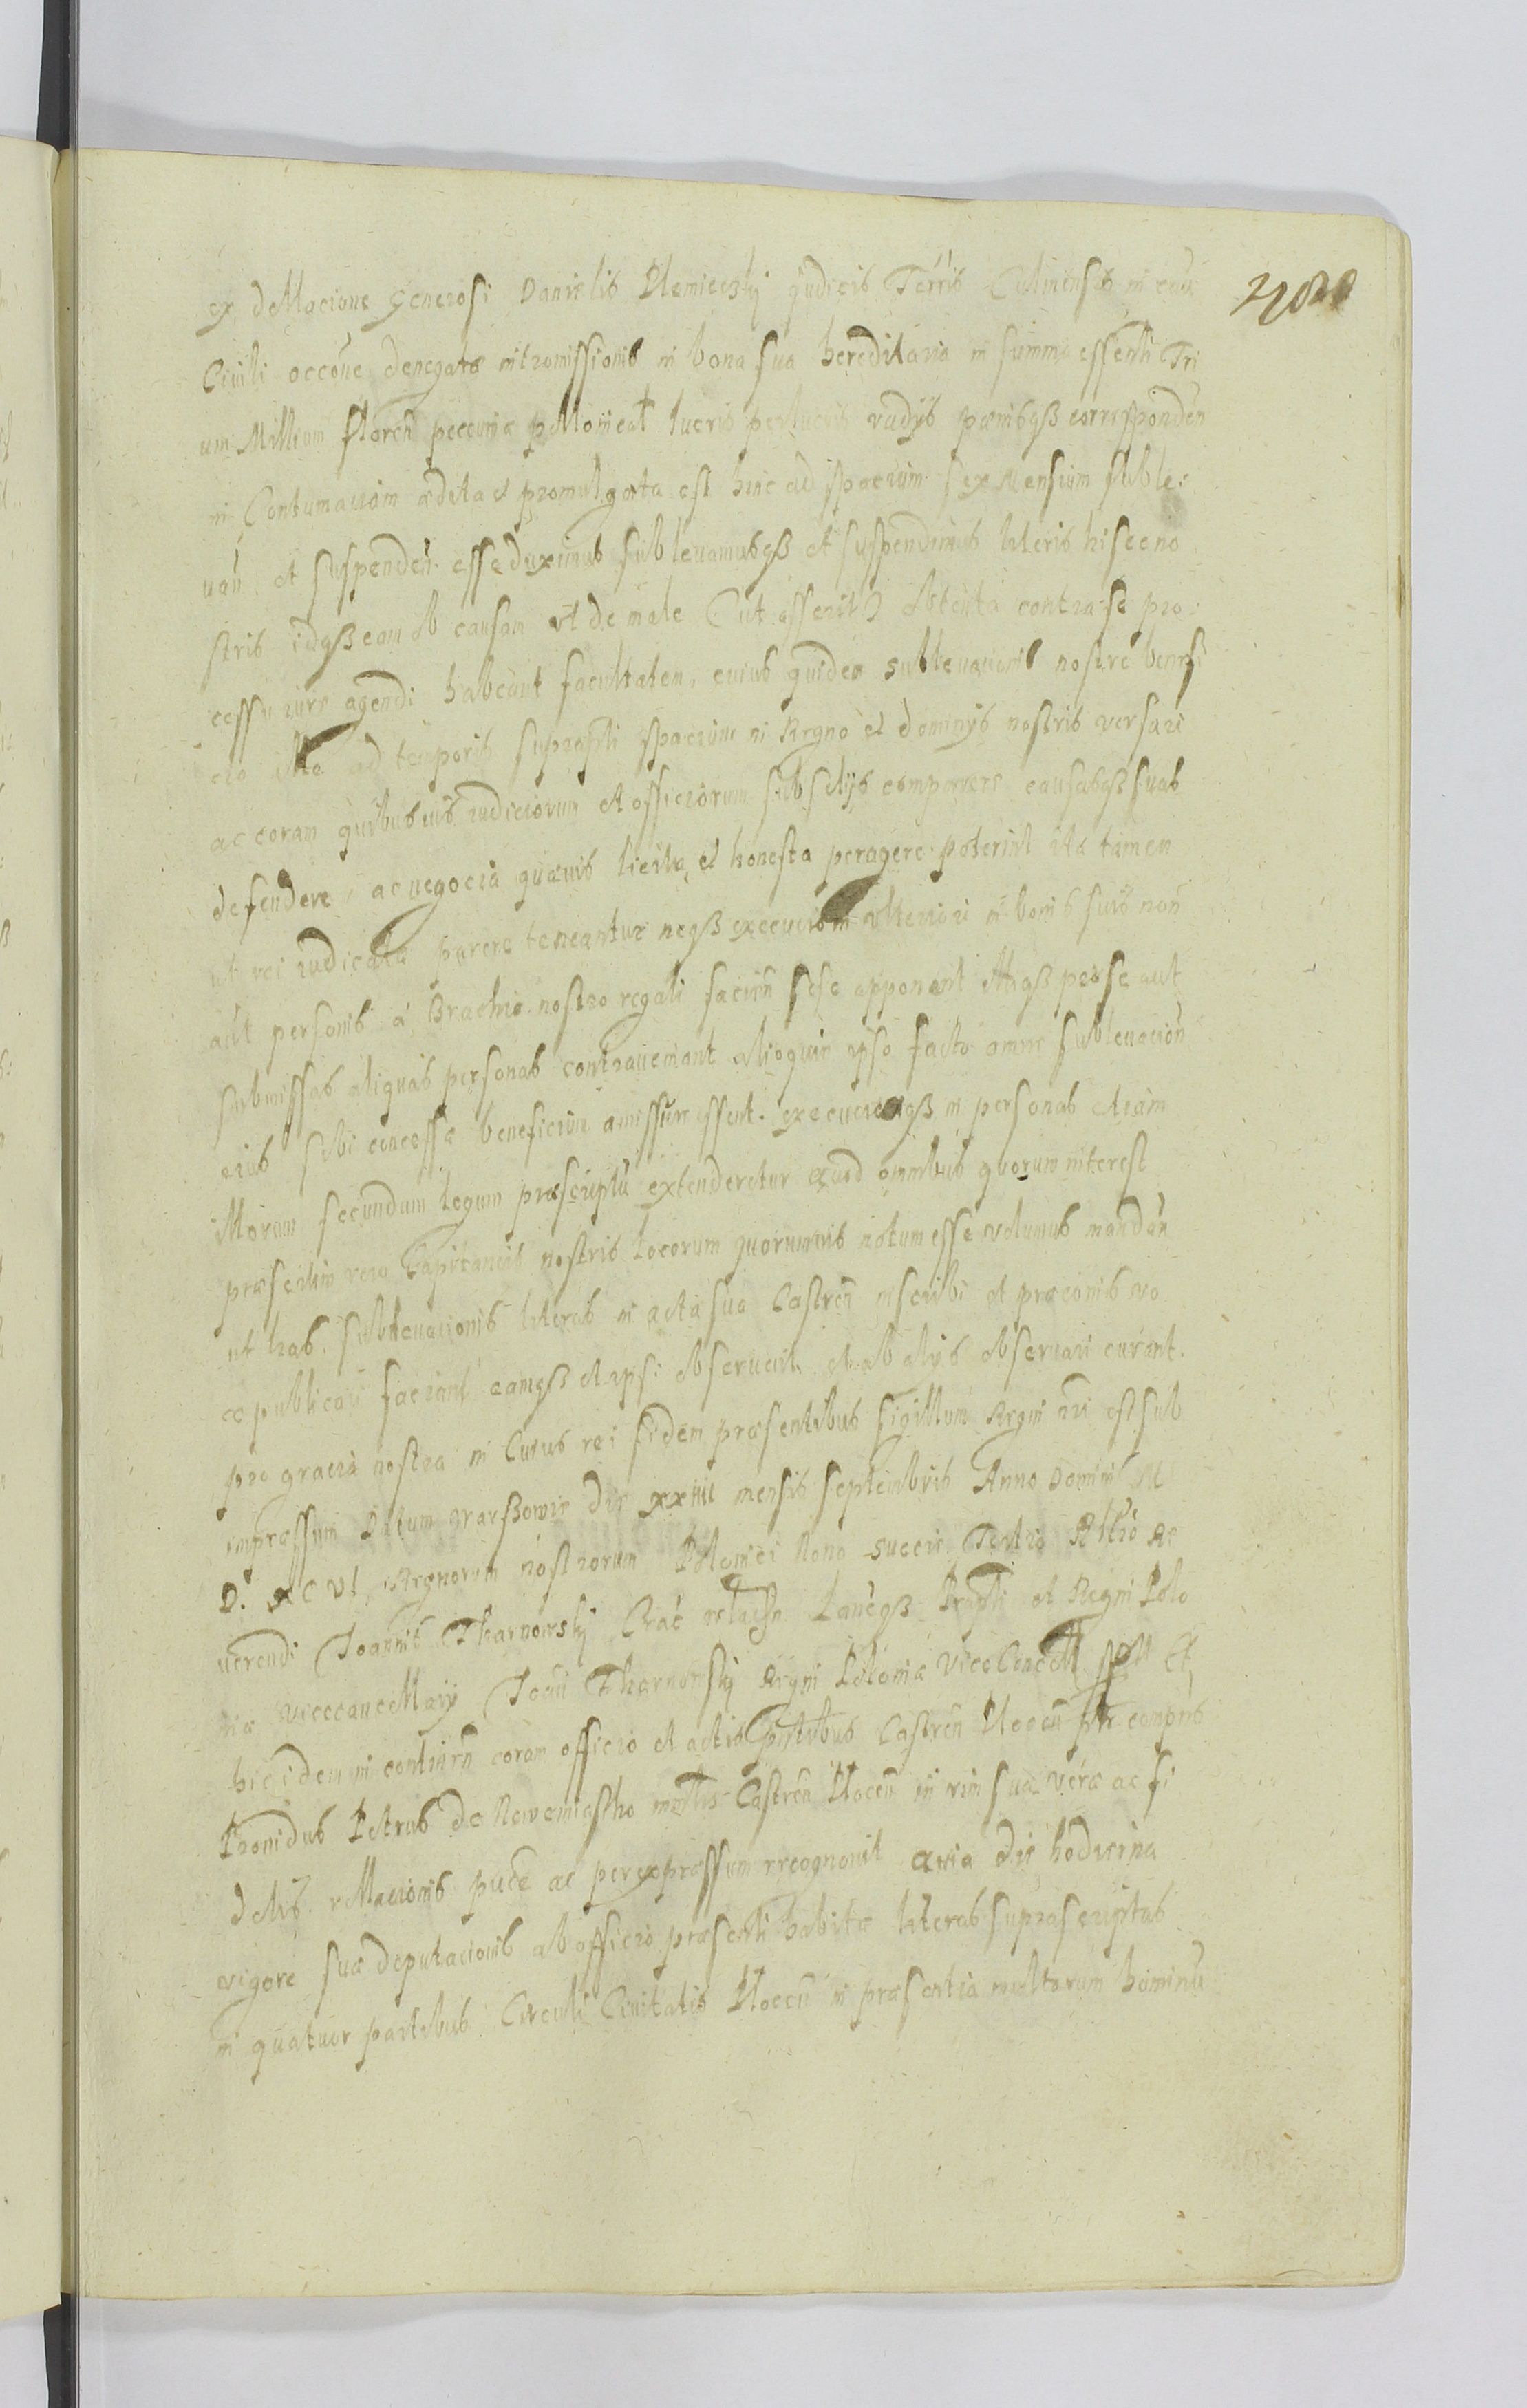 ex dellacione generosi Danielis Plemieczkÿ judicis Terris Culmensis in cau
Civili occōne denegatæ intromissionis in bona sua hereditaria in summa essentli Tri
um Millium Floren̄ peccuniæ pollonicał lucris perlucris vadÿs pœnisqß corresponden̄
in Contumaciam ædita et promulgata est hinc ad spacium sex Mensium suble:
uan̄. et suspenden̄. esse duximus subleuamusqß et suspendimus literis hisce no
stris idqß eam ob causam vt de male (ut asserit) obtenta contra se pro:
cessu iure agendi habeant facultatem, cuius quidem subleuacionis nostræ benefi
cio ad temporis suprascripti spacium in Regno et dominÿs nostris versari
ac coram quibusuis iudiciorum et officiorum subselijs comparere causasqß suas
defendere, ac negocia quæuis licita et honesta peragere poterint ita tamen
ut rei iudicatæ parere teneantur neqß execucioni vlteriori in bonis suis non
aūt personis à Brachio nostro regali facien̄ sese opponant Atqß per se aut
submissas aliquas personas contraueniant alioquin ipso facto omne subleuacion̄
eius sibi concessæ beneficium amissuri essent. execucioqß in personas etiam
illorum secundum legum præscriptū extenderetur Quod omnibus quorum interest
præsertim vero Capitaneis nostris locorum quorumuis notum esse volumus mandan̄
ut has subleuacionis literas in acta sua Castren̄ inscribi et præconis vo
ce publicari faciant eamqß et ipsi obseruent et ab alijs obseruari curent.
pro gracia nostra in Cuius rei fidem præsentibus sigillum Regni nri est sub
impressum Datum Warßowiæ die xxiiii mensis Septembris Anno Domini M
D. XC VI Regnorum nostrorum Poloniæ Nono sueciæ Tertio Rltio Re
uerendi Joannis Tharnowskÿ Crac̄ Præpti et Regni Polo
niæ vicecancellarÿ Joan̄ Tharnowskÿ Regni Poloniæ Vice Cancell
hic idem in continen̄ coram officio et actis pntibus Castren̄ Plocen̄ ptr comprns
Prouidus Petrus de Nowemiasto mnlis Castren̄ Plocen̄ in vim suæ veræ ac fi
delis rellacionis puce ac per expressum recognouit quia die hodierna
vigore suæ deputacionis ab officio præsenti habitæ literas suprascriptas
in quatuor partibus Circuli Ciuitatis Plocen̄ in præsentia multorum hominū